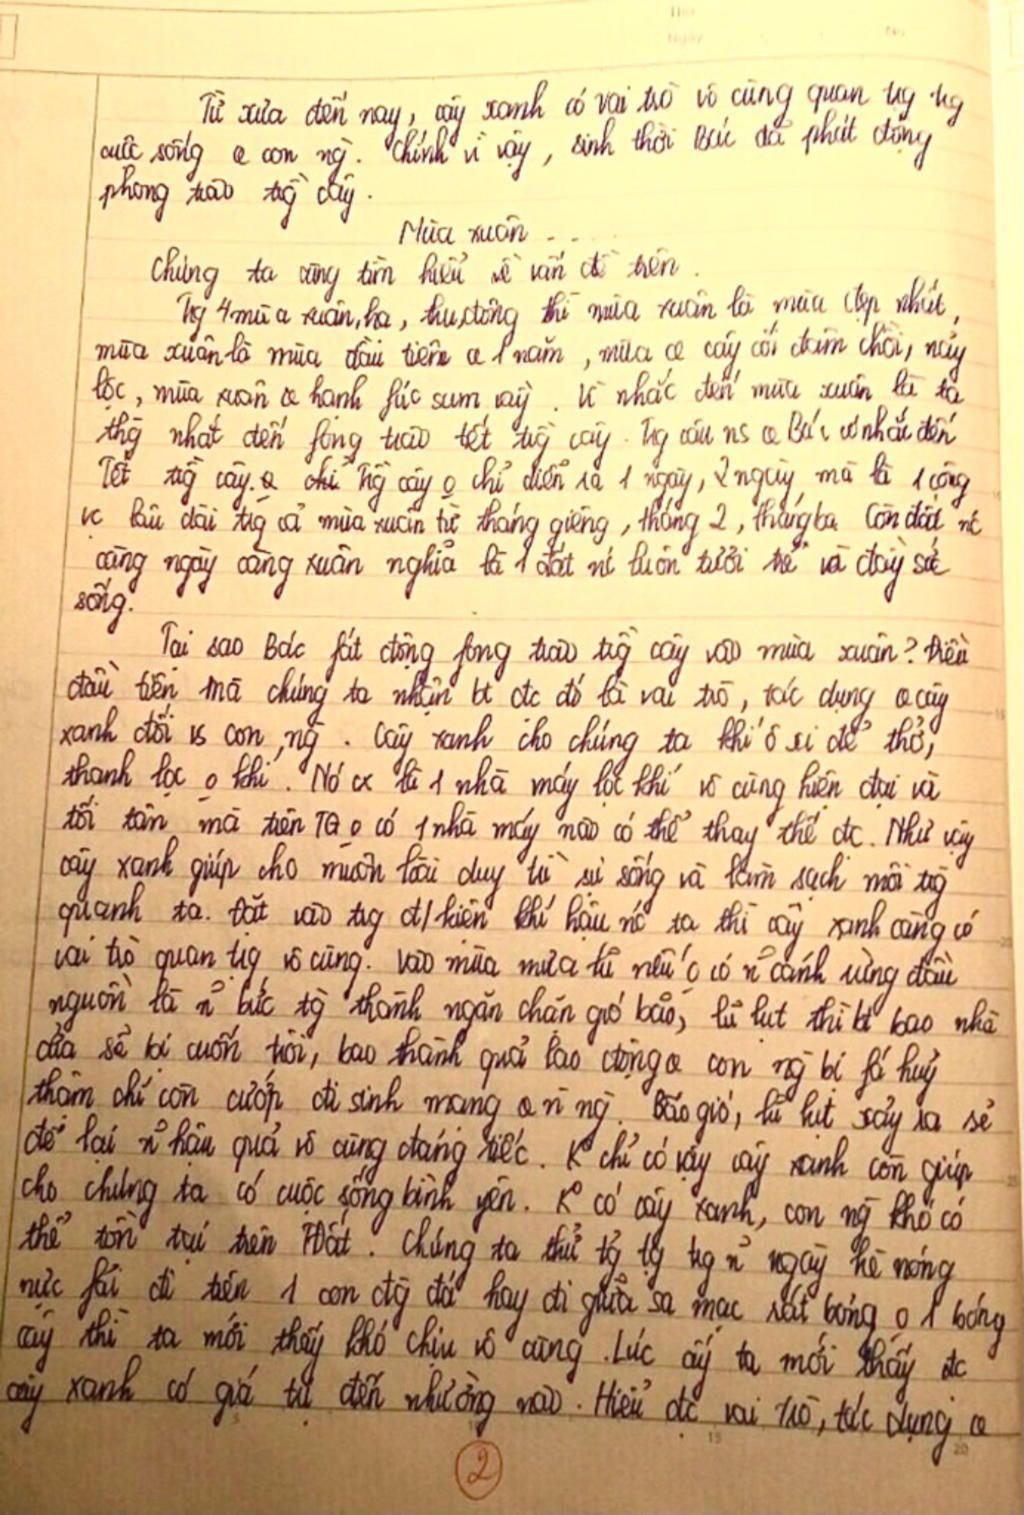 Từ xưa đến nay, cây xanh có vai trò vô cùng quan tṛg tṛg
cuộc sống @ con ng̀. Chính vì vậy, sinh thời Bác đã phát động
phong trào tr̀g cây.
Mùa xuân ...
Chúng ta cùng tìm hiểu về vấn đề trên.
Trg 4 mùa xuân, hạ, thu, đông thì mùa xuân là mùa đẹp nhất,
mùa xuân là mùa đầu tiên @ 1 năm, mùa @ cây cối đâm chồi, nảy
lộc, mùa xuân @ hạnh fúc sum vầy. Vì nhắc đến mùa xuân là ta
nhất đến fong trào tết tr̀g cây. Trg câu ns @ Bác có nhắc đến
Tết tr̀g cây. Tr̀g cây o chỉ diễn ra 1 ngày, 2 ngày mà là 1 công
vc lâu dài trg cả mùa xuân từ tháng giêng, tháng 2, tháng ba. Còn đất nc
càng ngày càng xuân nghĩa là 1 đất nc luôn tươi trẻ và đầy sức
sống.
Tại sao Bác fát động fong trào tr̀g cây vào mùa xuân? Điều
đầu tiên mà chúng ta nhận bt đc đó là vai trò, tác dụng @ cây
xanh đối vs con ng̀. Cây xanh cho chúng ta khí ô xi để thở,
thanh lọc o khí. Nó cx là 1 nhà máy lọc khí vô cùng hiện đại và
tối tân mà trên TG o có 1 nhà máy nào có thể thay thế đc. Như vậy
cây xanh giúp cho muôn loài duy trì sự sống và làm sạch môi trg̀
quanh ta. Đặt vào trg đ/kiện khí hậu nc ta thì cây xanh càng có
vai trò quan tṛg vô cùng. Vào mùa mưa lũ nếu o có n~ cánh rừng đầu
nguồn là n~ bức tg̀ thành ngăn chặn gió bão, lũ lụt thì bt bao nhà
cửa sẽ bị cuốn trôi, bao thành quả lao động @ con ng̀ bị fá huỷ
thậm chí còn cướp đi sinh mạng @ n ng̀. Bão gió, lũ lụt xảy ra sẽ
để lại n~ hậu quả vô cùng đáng tiếc. K° chỉ có vậy cây xanh còn giúp
cho chúng ta có cuộc sống bình yên. K° có cây xanh, con ng̀ khó có
thể tồn tại trên TĐất. Chúng ta thử tg̉ tg̣ trg n~ ngày hè nóng
nực fải đi trên 1 con đg̀ đá hay đi giữa sa mạc sát bỏng o 1 bóng
cây thì ta mới thấy khó chịu vô cùng. Lúc ấy ta mới thấy đc
cây xanh có giá trị đến nhường nào. Hiểu đc vai trò, tác dụng @
2